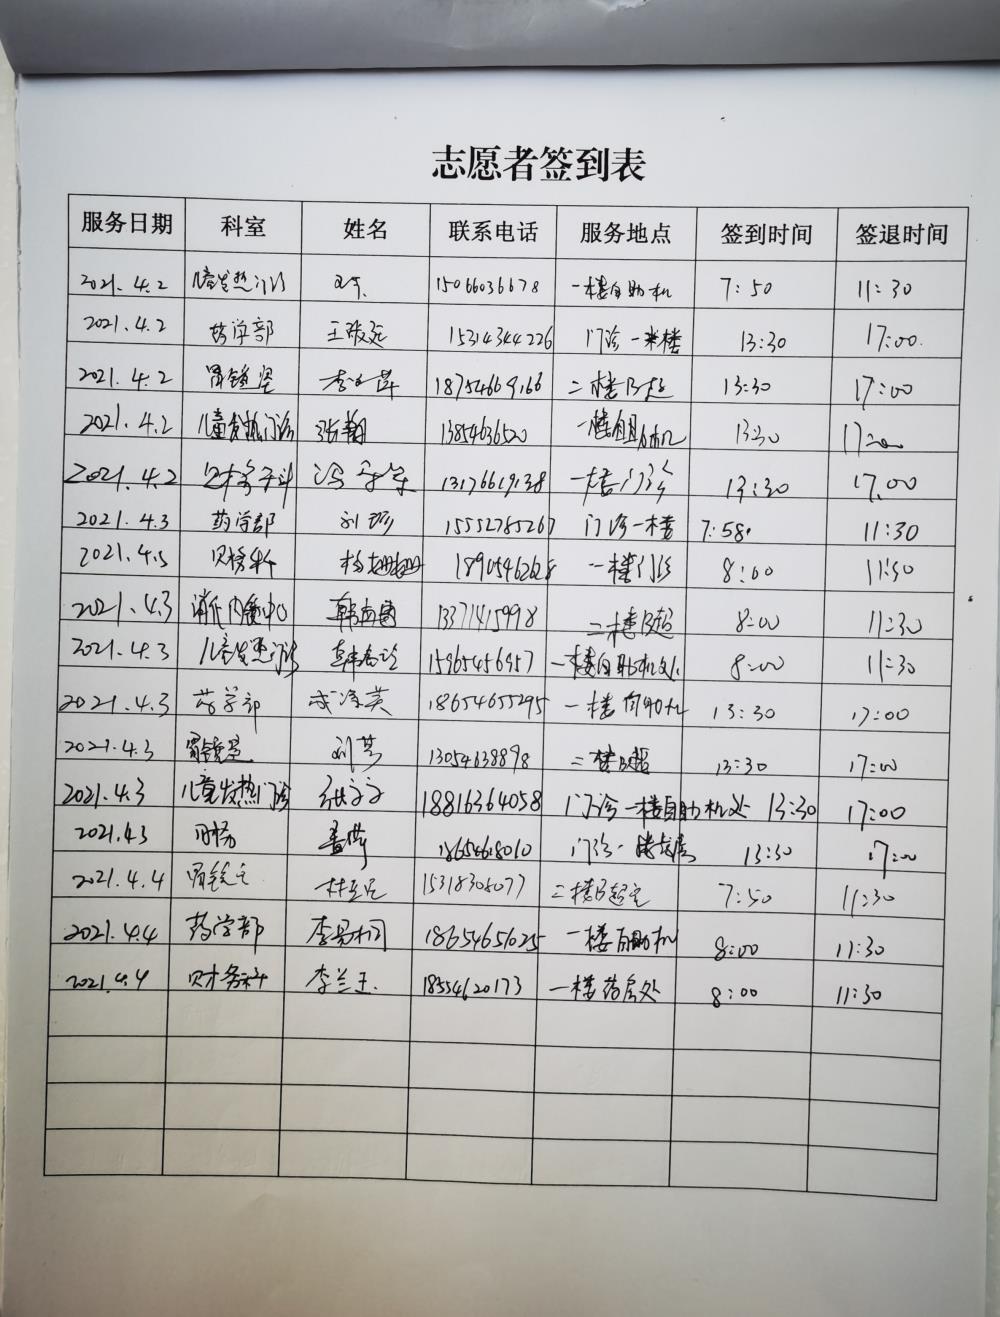 志愿者签到表
服务日期 科室 姓名 联系电话 服务地点 签到时间 签退时间
2021.4.2 儿童发热门诊 15066036678 一楼自助机 7:50 11:30
2021.4.2 药学部 15314344226 门诊一楼 13:30 17:00
2021.4.2 胃镜室 18754669166 二楼B超 13:30 17:00
2021.4.2 儿童发热门诊 张翱 13854636520 一楼自助机 13:30 17:00
2021.4.2 13176619138 一楼门诊 13:30 17.00
2021.4.3 药学部 刘珍 15552785267 门诊一楼 7:58 11:30
2021.4.3 财务科 杨珊珊 一楼门诊 8:00 11:30
2021.4.3 消化内镜中心 13371415998 二楼B超 8:00 11:30
2021.4.3 儿童发热门诊 15965456957 一楼自助机处 8:00 11:30
2021.4.3 药学部 18654655295 一楼自助机 13:30 17:00
2021.4.3 胃镜室 13054638898 二楼B超 13:30 17:00
2021.4.3 儿童发热门诊 张文文 18816364058 门诊一楼自助机处 13:30 17:00
2021.4.3 财务 18654618010 门诊一楼药房 13:30 17:00
2021.4.4 胃镜室 15318308077 二楼B超室 7:50 11:30
2021.4.4 药学部 18654651025 一楼自助机 8:00 11:30
2021.4.4 财务科 李兰玉 18554620173 一楼药房处 8:00 11:30